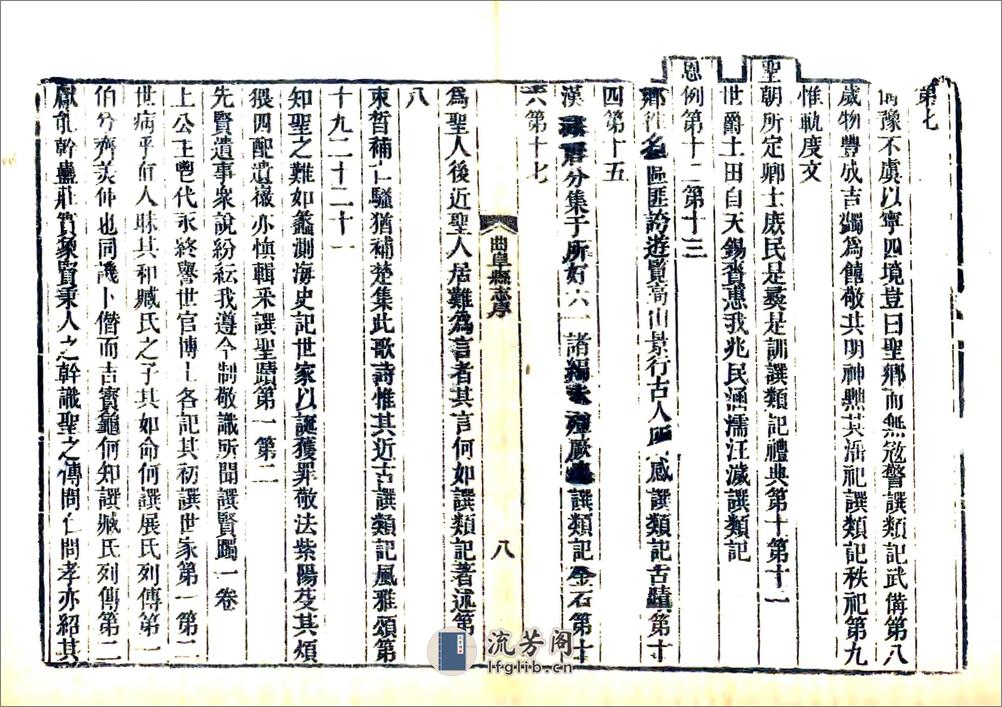 第七
備豫不虞以寧四境豈曰聖鄉而無儆警譔類記武備第八
歲物豐成吉蠲爲饎敬其明神黜其淫祀譔類記秩祀第九
惟軌度文
聖朝所定卿士庶民是彝是訓譔類記禮典第十第十一
世爵土田自天錫賚惠我兆民涵濡汪濊譔類記
恩例第十二第十三
鄉往名區匪誇遊覽高山景行古人所感譔類記古蹟第十
四第十五
漢分集子所好六一諸編譔類記金石第十
六第十七
曲阜縣志序
八
爲聖人後近聖人居難爲言者其言何如譔類記著述第十
八
束晳補亡騷猶補楚集此歌詩惟其近古譔類記風雅頌第
十九二十二十一
知聖之難如蠡測海史記世家以誕獲罪敬法紫陽芟其煩
猥四配遺徽亦愼輯釆譔聖蹟第一第二
先賢遺事衆說紛紜我遵今制敬識所聞譔賢躅一卷
上公主鬯代永終譽世官博士各記其初譔世家第一第二
世病乎直人昧其和臧氏之子其如命何譔展氏列傳第一
伯兮齊美仲也同譏卜僭而吉寶龜何知譔臧氏列傳第二
獻能幹蠱莊實象賢秉人之幹識聖之傳問仁問孝亦紹其
流芳阁
lfglib.cn